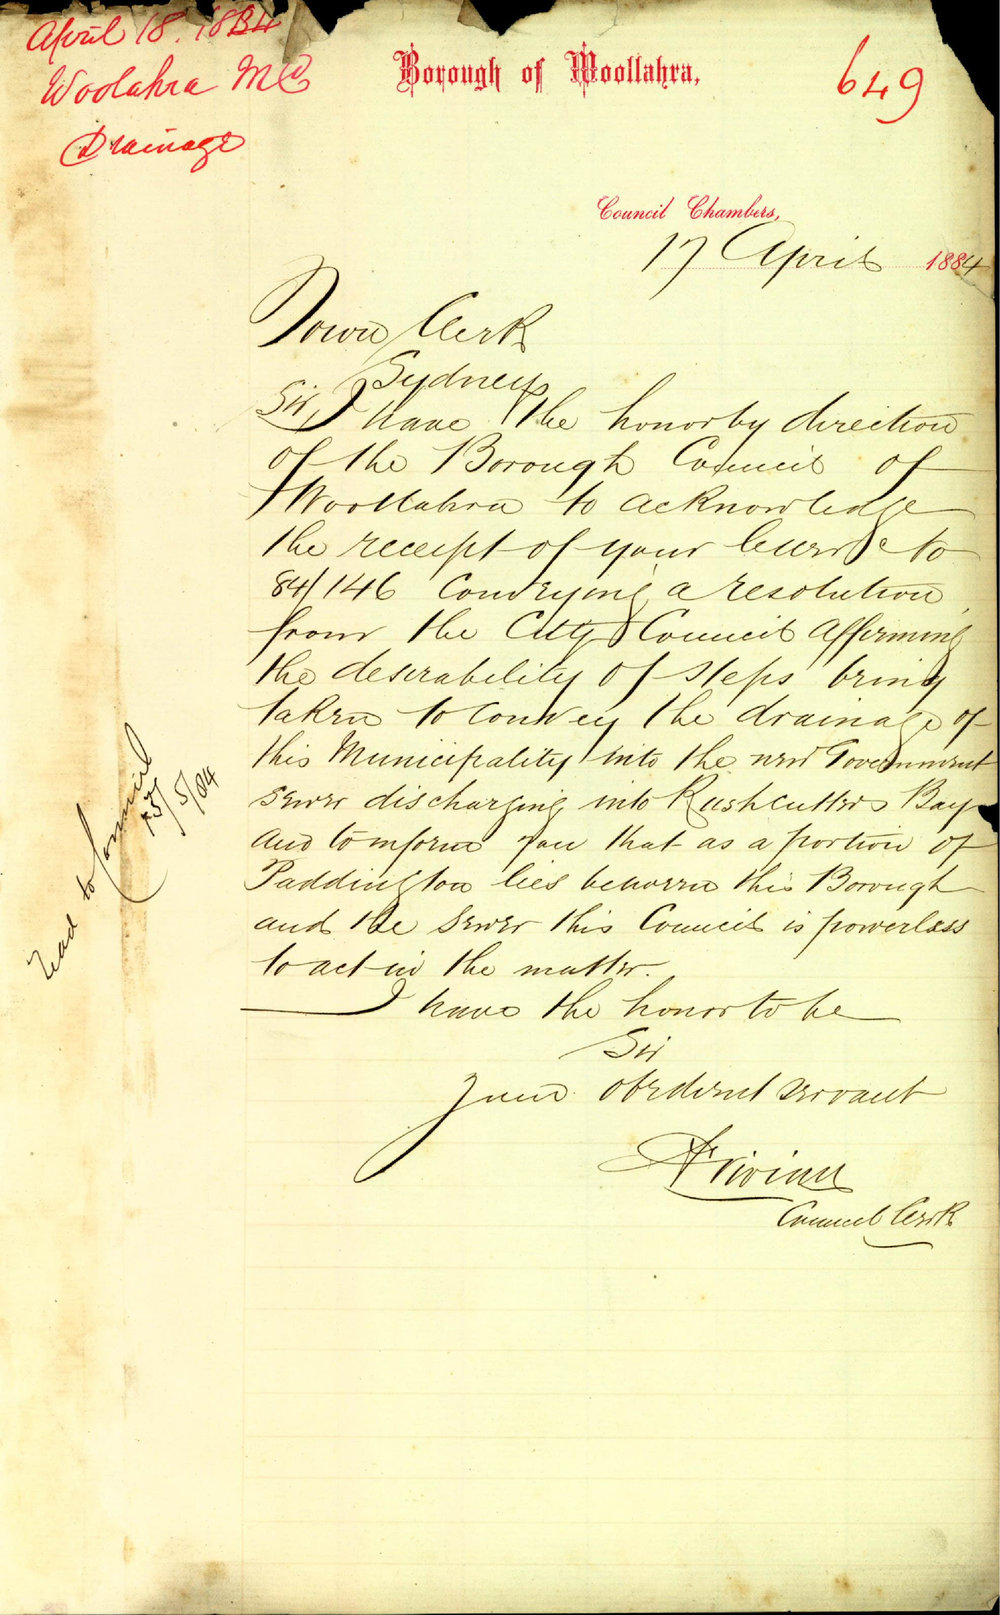 April 18. 1884
Woolahra MC
Drainage
Borough of Woollahra,
649
Council Chambers,
17 April 1884
Town Clerk
Sydney
Sir, I have the honor by direction
of the Borough Council of
Woollahra to acknowledge
the receipt of your letter
84/146 Conveying a resolution
from the City Council affirming
the desirability of steps being
taken to convey the drainage of
this Municipality into the new Government
sewer discharging into Rushcutters Bay
and to inform you that as a portion of
Paddington lies between this Borough
and the sewer this Council is powerless
to act in the matter.
I have the honor to be
Sir
Your obedient servant
Council Clerk
read to Council
5/84